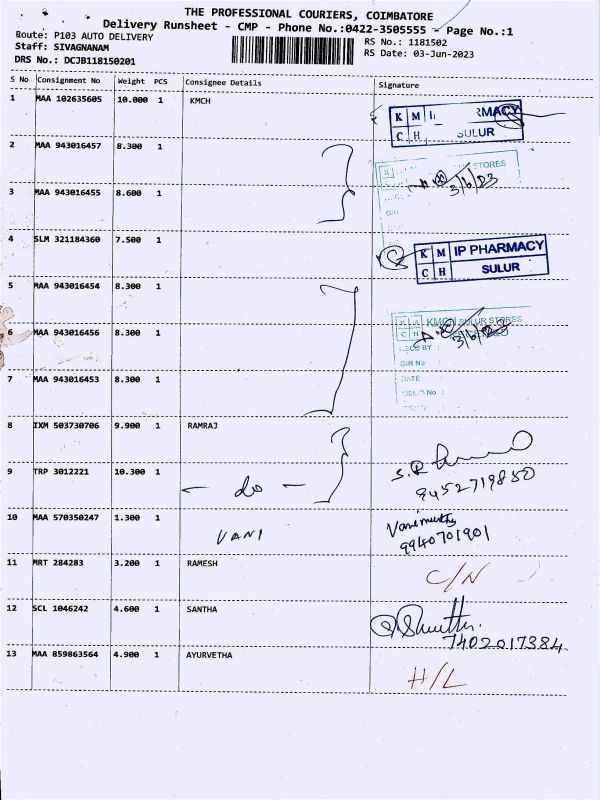 THE PROFESSIONAL COURIERS, COIMBATORE
Delivery Runsheet - CMP - Phone No.:0422-3505555 - Page No.:1
Route: P103 AUTO DELIVERY
RS No.: 1181502
Staff: SIVAGNANAM
RS Date: 03-Jun-2023
DRS No.: DCJB118150201
S No Consignment No Weight PCS Consignee Details Signature
1 MAA 102635605 10.000 1 KMCH
K M PHARMACY
C H SULUR
2 MAA 943016457 8.300 1
STORES
3/6/23
3 MAA 943016455 8.600 1
4 SLM 321184360 7.500 1
K M IP PHARMACY
C H SULUR
5 MAA 943016454 8.300 1
KMCH SULUR STORES
6 MAA 943016456 8.300 1
3/6/23
GIR No
7 MAA 943016453 8.300 1
DATE
8 IXM 503730706 9.900 1 RAMRAJ
S.R
9 TRP 3012221 10.300 1 - do -
9452719850
10 MAA 570350247 1.300 1 VANI
9940701901
11 MRT 284283 3.200 1 RAMESH C/N
12 SCL 1046242 4.600 1 SANTHA
7402017384
13 MAA 859863564 4.900 1 AYURVETHA H/L